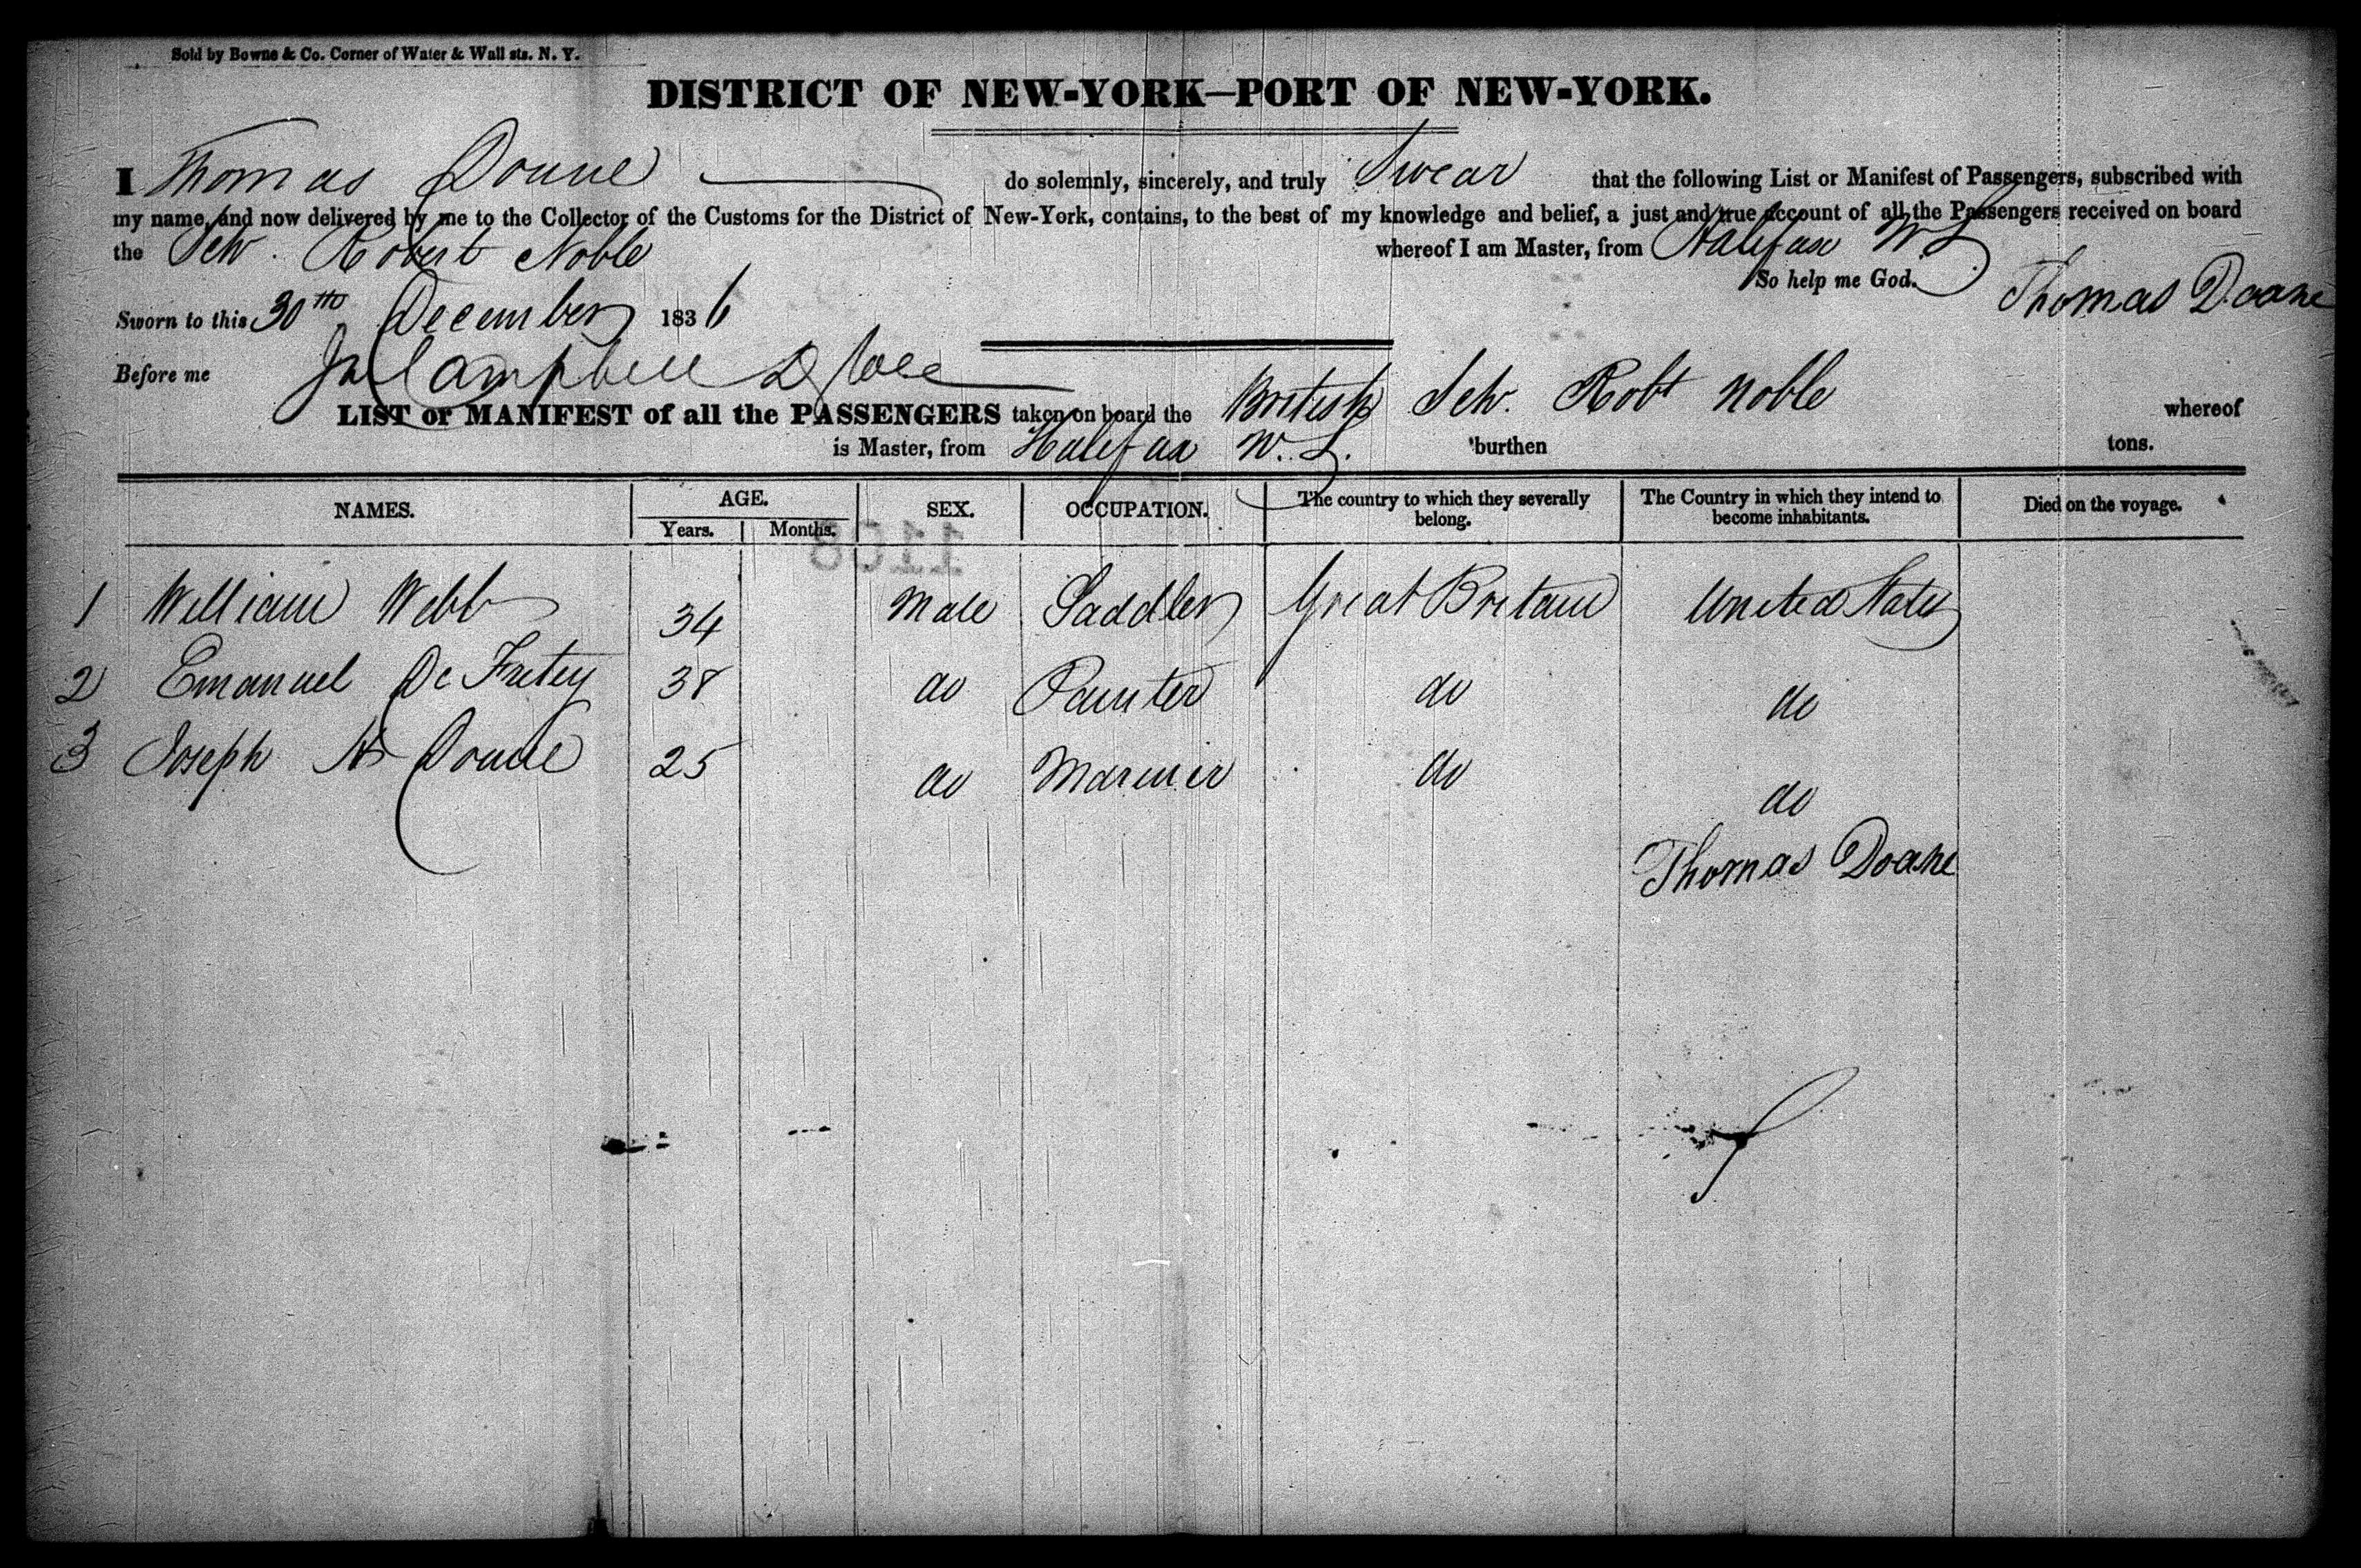 Sold by Bowne & Co. Corner of Water & Wall sts. N. Y.
DISTRICT OF NEW-YORK—PORT OF NEW-YORK.
I Thomas Doane do solemnly, sincerely, and truly Swear that the following List or Manifest of Passengers, subscribed with
my name, and now delivered by me to the Collector of the Customs for the District of New-York, contains, to the best of my knowledge and belief, a just and true account of all the Passengers received on board
the Schr. Robert Noble whereof I am Master, from Halifax N.S.
So help me God. Thomas Doane
Sworn to this 30th December 1836
Before me Campbell
LIST or MANIFEST of all the PASSENGERS taken on board the British Schr. Robt Noble whereof
is Master, from Halifax N.S. burthen tons.
NAMES. AGE. SEX. OCCUPATION. The country to which they severally belong. The Country in which they intend to become inhabitants. Died on the voyage.
Years. Months.
1108
1 William Webb 34 Male Saddler Great Britain United States
2 Emanuel De 38 do Painter do do
3 Joseph Doane 25 do Mariner do do
Thomas Doane